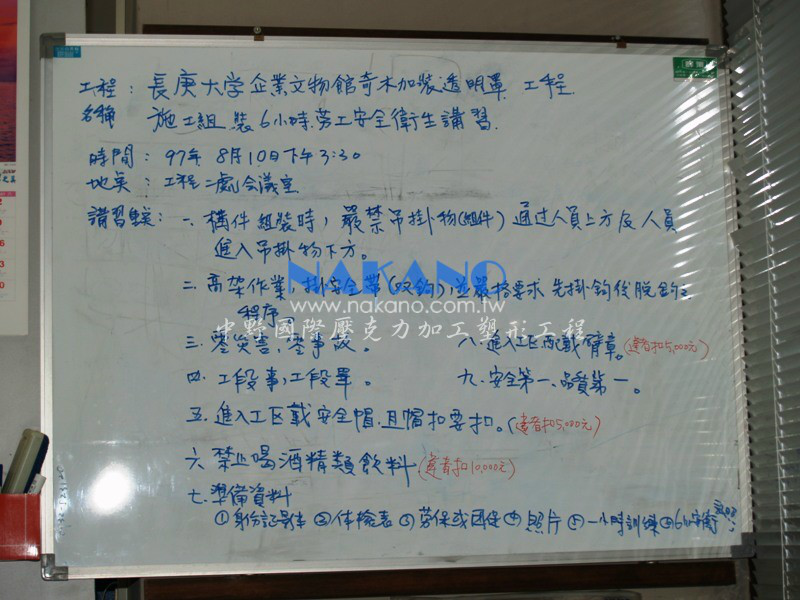 工程：長庚大学企業文物館奇木加裝透明罩 工程
名稱 施工組裝6小時勞工安全衛生講習
時間：97年 8月10日下午3:30
地点：工程二處会議室
講習要点：一、構件組裝時，嚴禁吊掛物(組件)通过人員上方及人員
進入吊掛物下方。
二、高架作業，掛安全帶(双鈎)，並嚴格要求 先掛鈎後脫鈎之
程序。
NAKANO
www.nakano.com.tw
中野國際壓克力加工塑形工程
三、零災害，零事故。 八、進入工区配載臂章。(違者扣5,000元)
四、工段事，工段畢。 九、安全第一、品質第一。
五、進入工区載安全帽，且帽扣要扣。(違者扣5,000元)
六、禁止喝酒精類飲料(違者扣10,000元)
七、準備資料
①身份証影本 ②体檢表 ③勞保或团保 ④照片 ⑤一小時訓練 ⑥6小時安衛